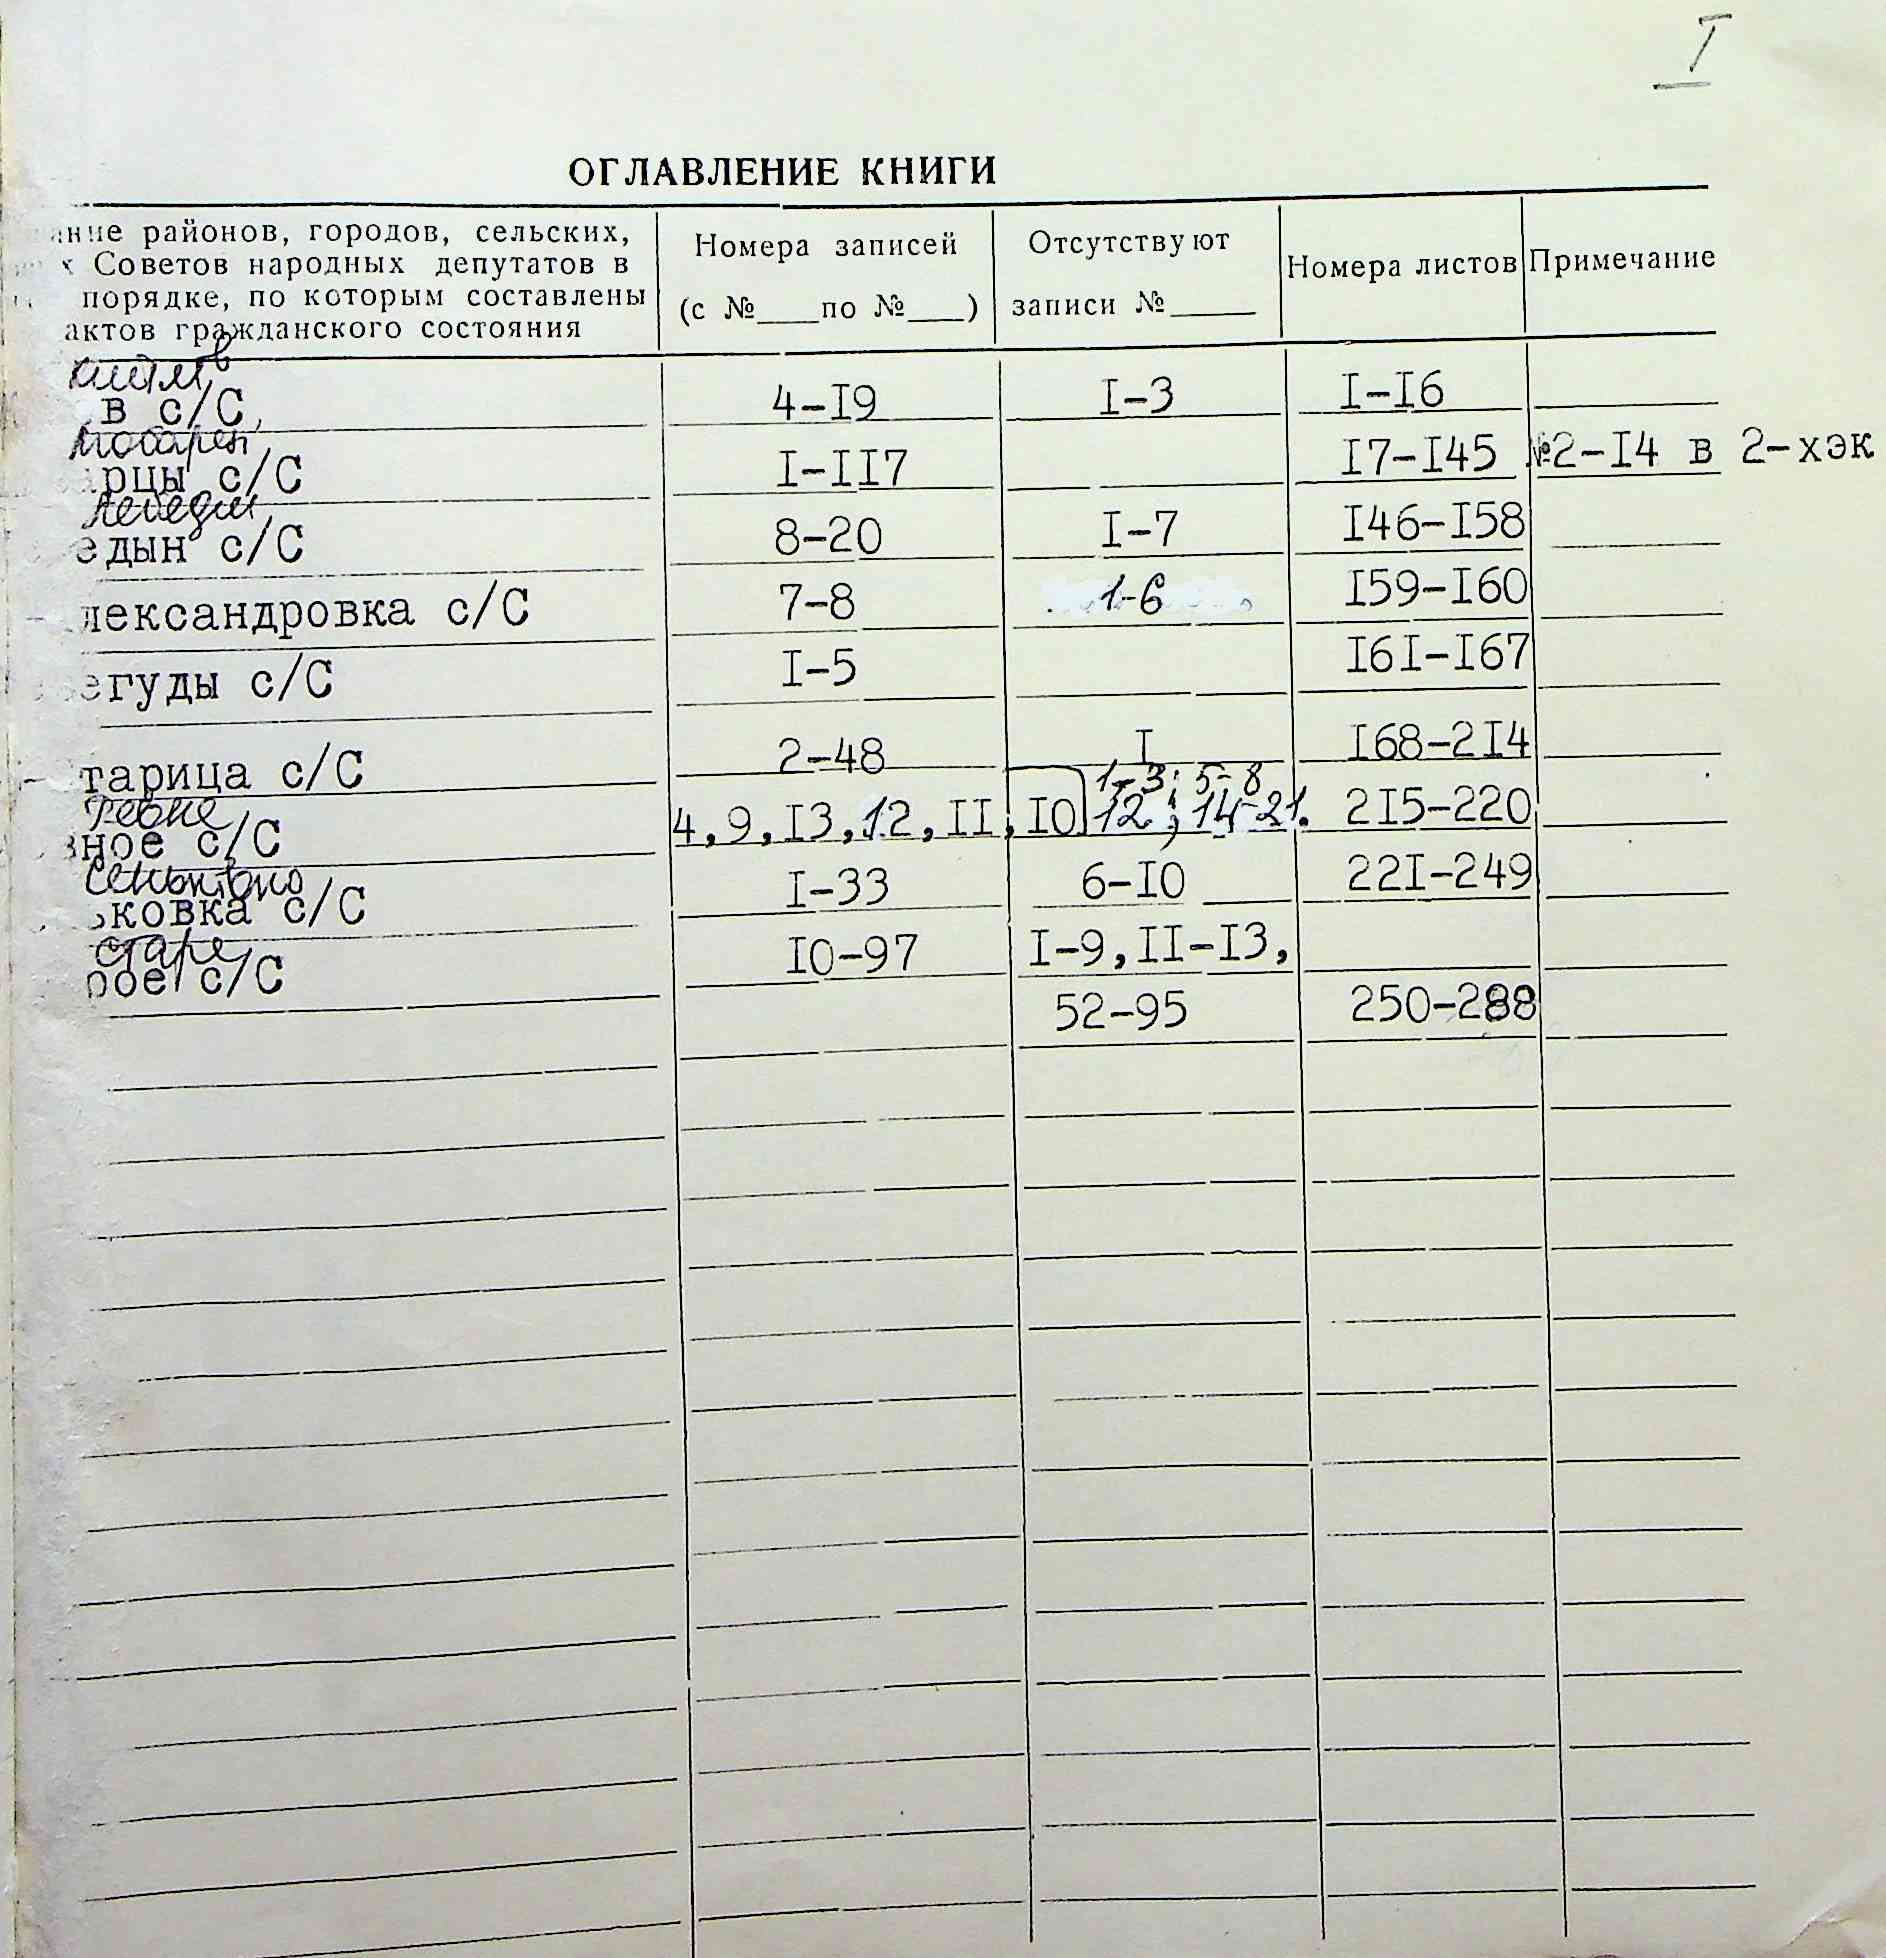 I
ОГЛАВЛЕНИЕ КНИГИ
ание районов, городов, сельских,
х Советов народных депутатов в
порядке, по которым составлены
актов гражданского состояния
Номера записей
(с №____по №____)
Отсутствуют
записи №______
Номера листов
Примечание
в с/С 4-I9 I-3 I-I6
рцы с/С I-II7 I7-I45 №2-I4 в 2-хэк
Лебедин
едын с/С 8-20 I-7 I46-I58
лександровка с/С 7-8 1-6 I59-I60
егуды с/С I-5 I6I-I67
тарица с/С 2-48 I I68-2I4
Ревне 1-3; 5-8
вное с/С 4,9,I3,12,II,IO 12; 14-21. 2I5-220
Сеньківка
ьковка с/С I-33 6-IO 22I-249
Старе
рое с/С IO-97 I-9,II-I3,
52-95 250-288